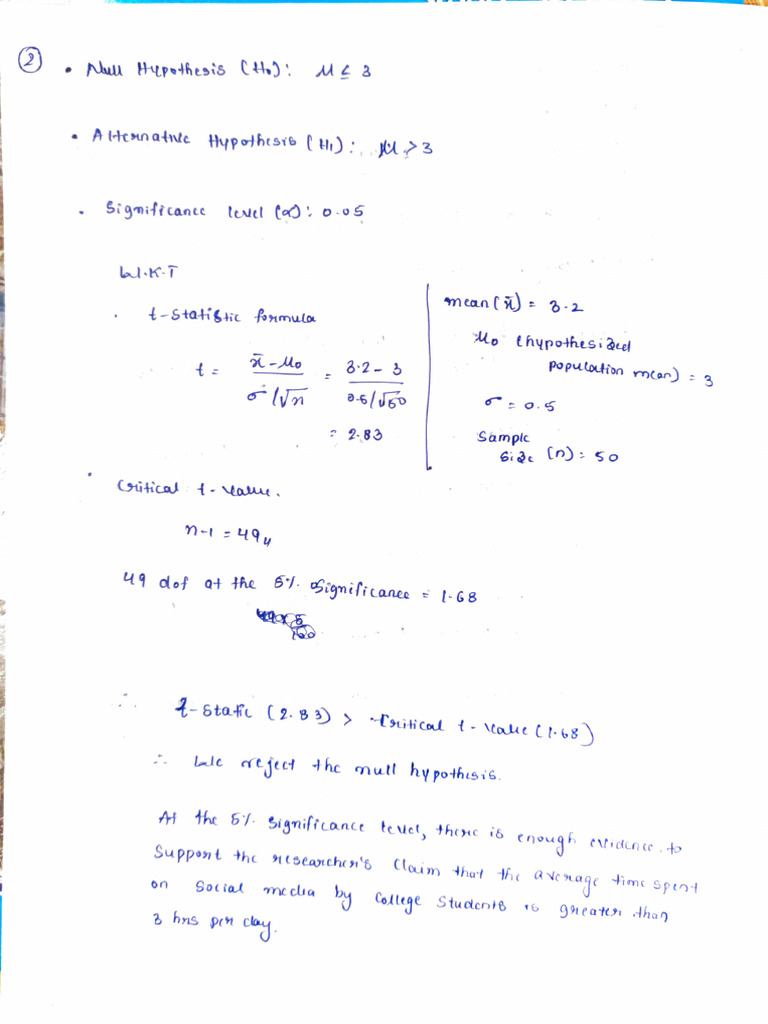 ②
• Null Hypothesis (H₀): μ ≤ 3
• Alternative Hypothesis (H₁): μ > 3
• Significance level (α): 0.05
W.K.T
• t-statistic formula
t = (x̄ - μ₀) / (σ/√n) = (3.2 - 3) / (0.5/√50)
= 2.83
mean (x̄) = 3.2
μ₀ (hypothesized
population mean) = 3
σ = 0.5
Sample
Size (n) = 50
• Critical t-value.
n-1 = 49
49 dof at the 5% significance = 1.68
∴ t-static (2.83) > Critical t-value (1.68)
∴ We reject the null hypothesis.
At the 5% significance level, there is enough evidence to
support the researcher's claim that the average time spent
on social media by College Students is greater than
3 hrs per day.